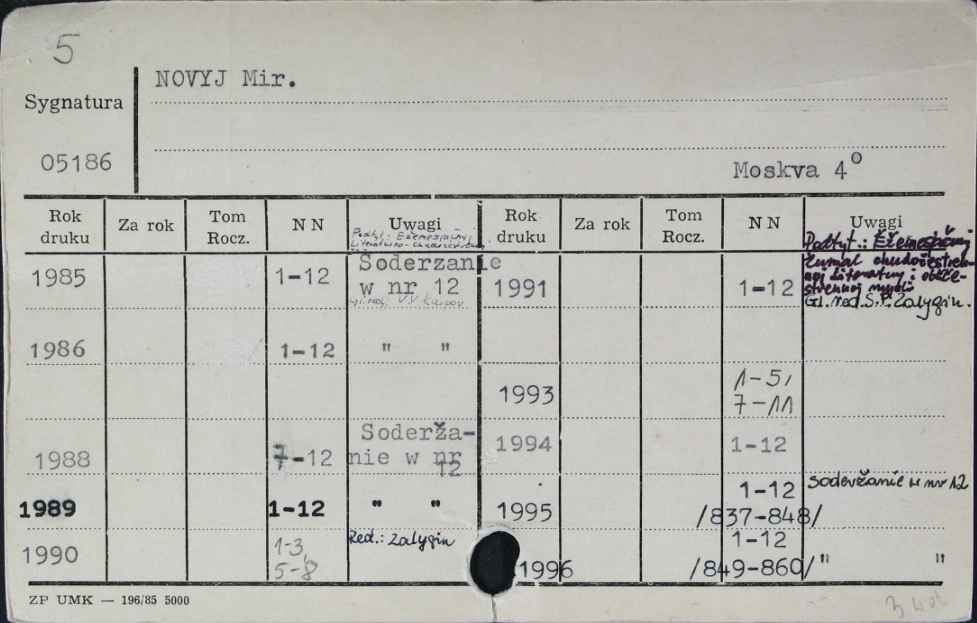 5
NOVYJ Mir.
Sygnatura
05186
Moskva 4°
Rok druku Za rok Tom Rocz. N N Uwagi Rok druku Za rok Tom Rocz. N N Uwagi
Podtyt.: Ežemesjačnyj
1985 1-12 Soderzanie
w nr 12
1991 1-12 Podtyt.: Ežemesjačnyj
žurnal chudožestven-
noj literatury i obšče-
stvennoj mysli
Gl. red. S.P. Zalygin.
1986 1-12 " "
1993 1-5,
7-11
1988 7-12 Soderža-
nie w nr
12
1994 1-12
1989 1-12 " "
1995 1-12
/837-848/
soderžanie w nr 12
1990 1-3,
5-8
Red.: Zalygin
1996 1-12
/849-860/ " "
ZP UMK — 196/85 5000